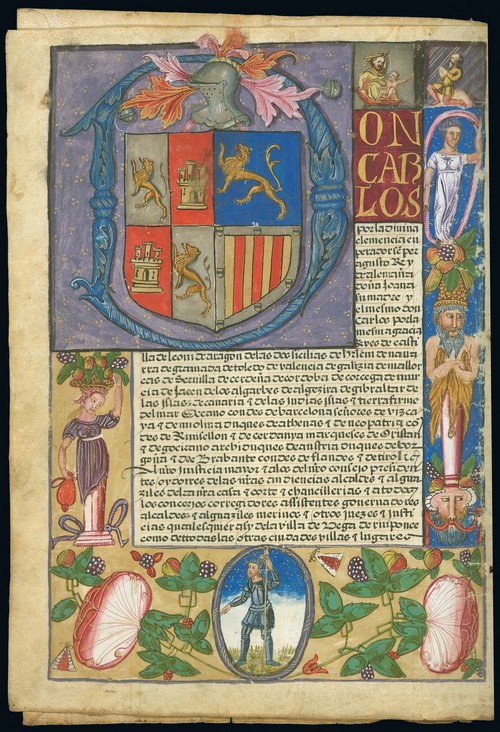 DON
CAR
LOS
por la diuina
clemencia en
perador sēper
augusto Rey
de alemaña
doña Joana
su madre y
el mesmo don
Carlos por la
mesma gracia
Reyes de casti
lla de leon de aragon de las dos sicilias de hierlm de naua
rra de granada de toledo de valencia de galizia de mallor
cas de Seuilla de cerdeña de cordoua de corcega de mur
cia de Jaen de los algarbes de algezira de gibraltar de
las islas de canaria & de las Indias islas & tierra firme
del mar Oceano condes de barcelona señores de vizca
ya & de molina duques de athenas & de neopatria cō
des de Ruisellon & de cerdania marqueses de Oristan
& de gociano archiduques de austria duques de bor
goña & de Brabante condes de flandes & de tirol &c
justicia mayor & a los del nro consejo presiden
tes y oydores de las nras audiencias alcaldes & algua
ziles de la nra casa & corte & chancillerias & a todos
los concejos corregidores assistentes gouernadores
alcaldes & alguaziles merinos & otros juezes & justi
cias qualesquier assy de la villa de
como de todas las otras ciudades villas & lugares